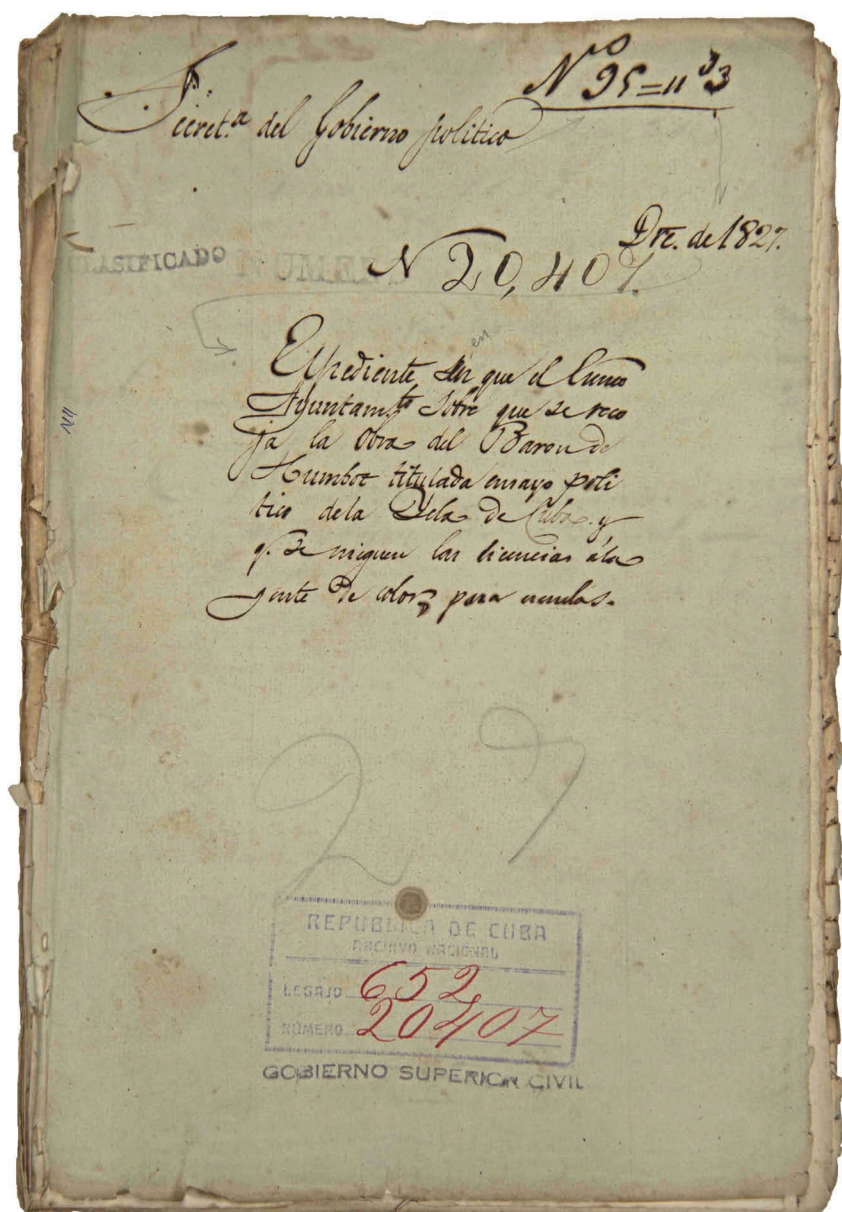 Nº 95=11 33
Secret.ª del Gobierno politico
Dre. de 1827.
CLASIFICADO NUMERO
N 20,407.
en
Expediente en que el Exmo
Ayuntamto sobre que se reco
ja la Obra del Baron de
Humbot titulada ensayo poli
tico dela Ysla de Cuba. y
q. se nieguen las licencias ála
gente de color, para escuelas.
27
REPUBLICA DE CUBA
ARCHIVO NACIONAL
LEGAJO 652
NÚMERO 20407
GOBIERNO SUPERIOR CIVIL